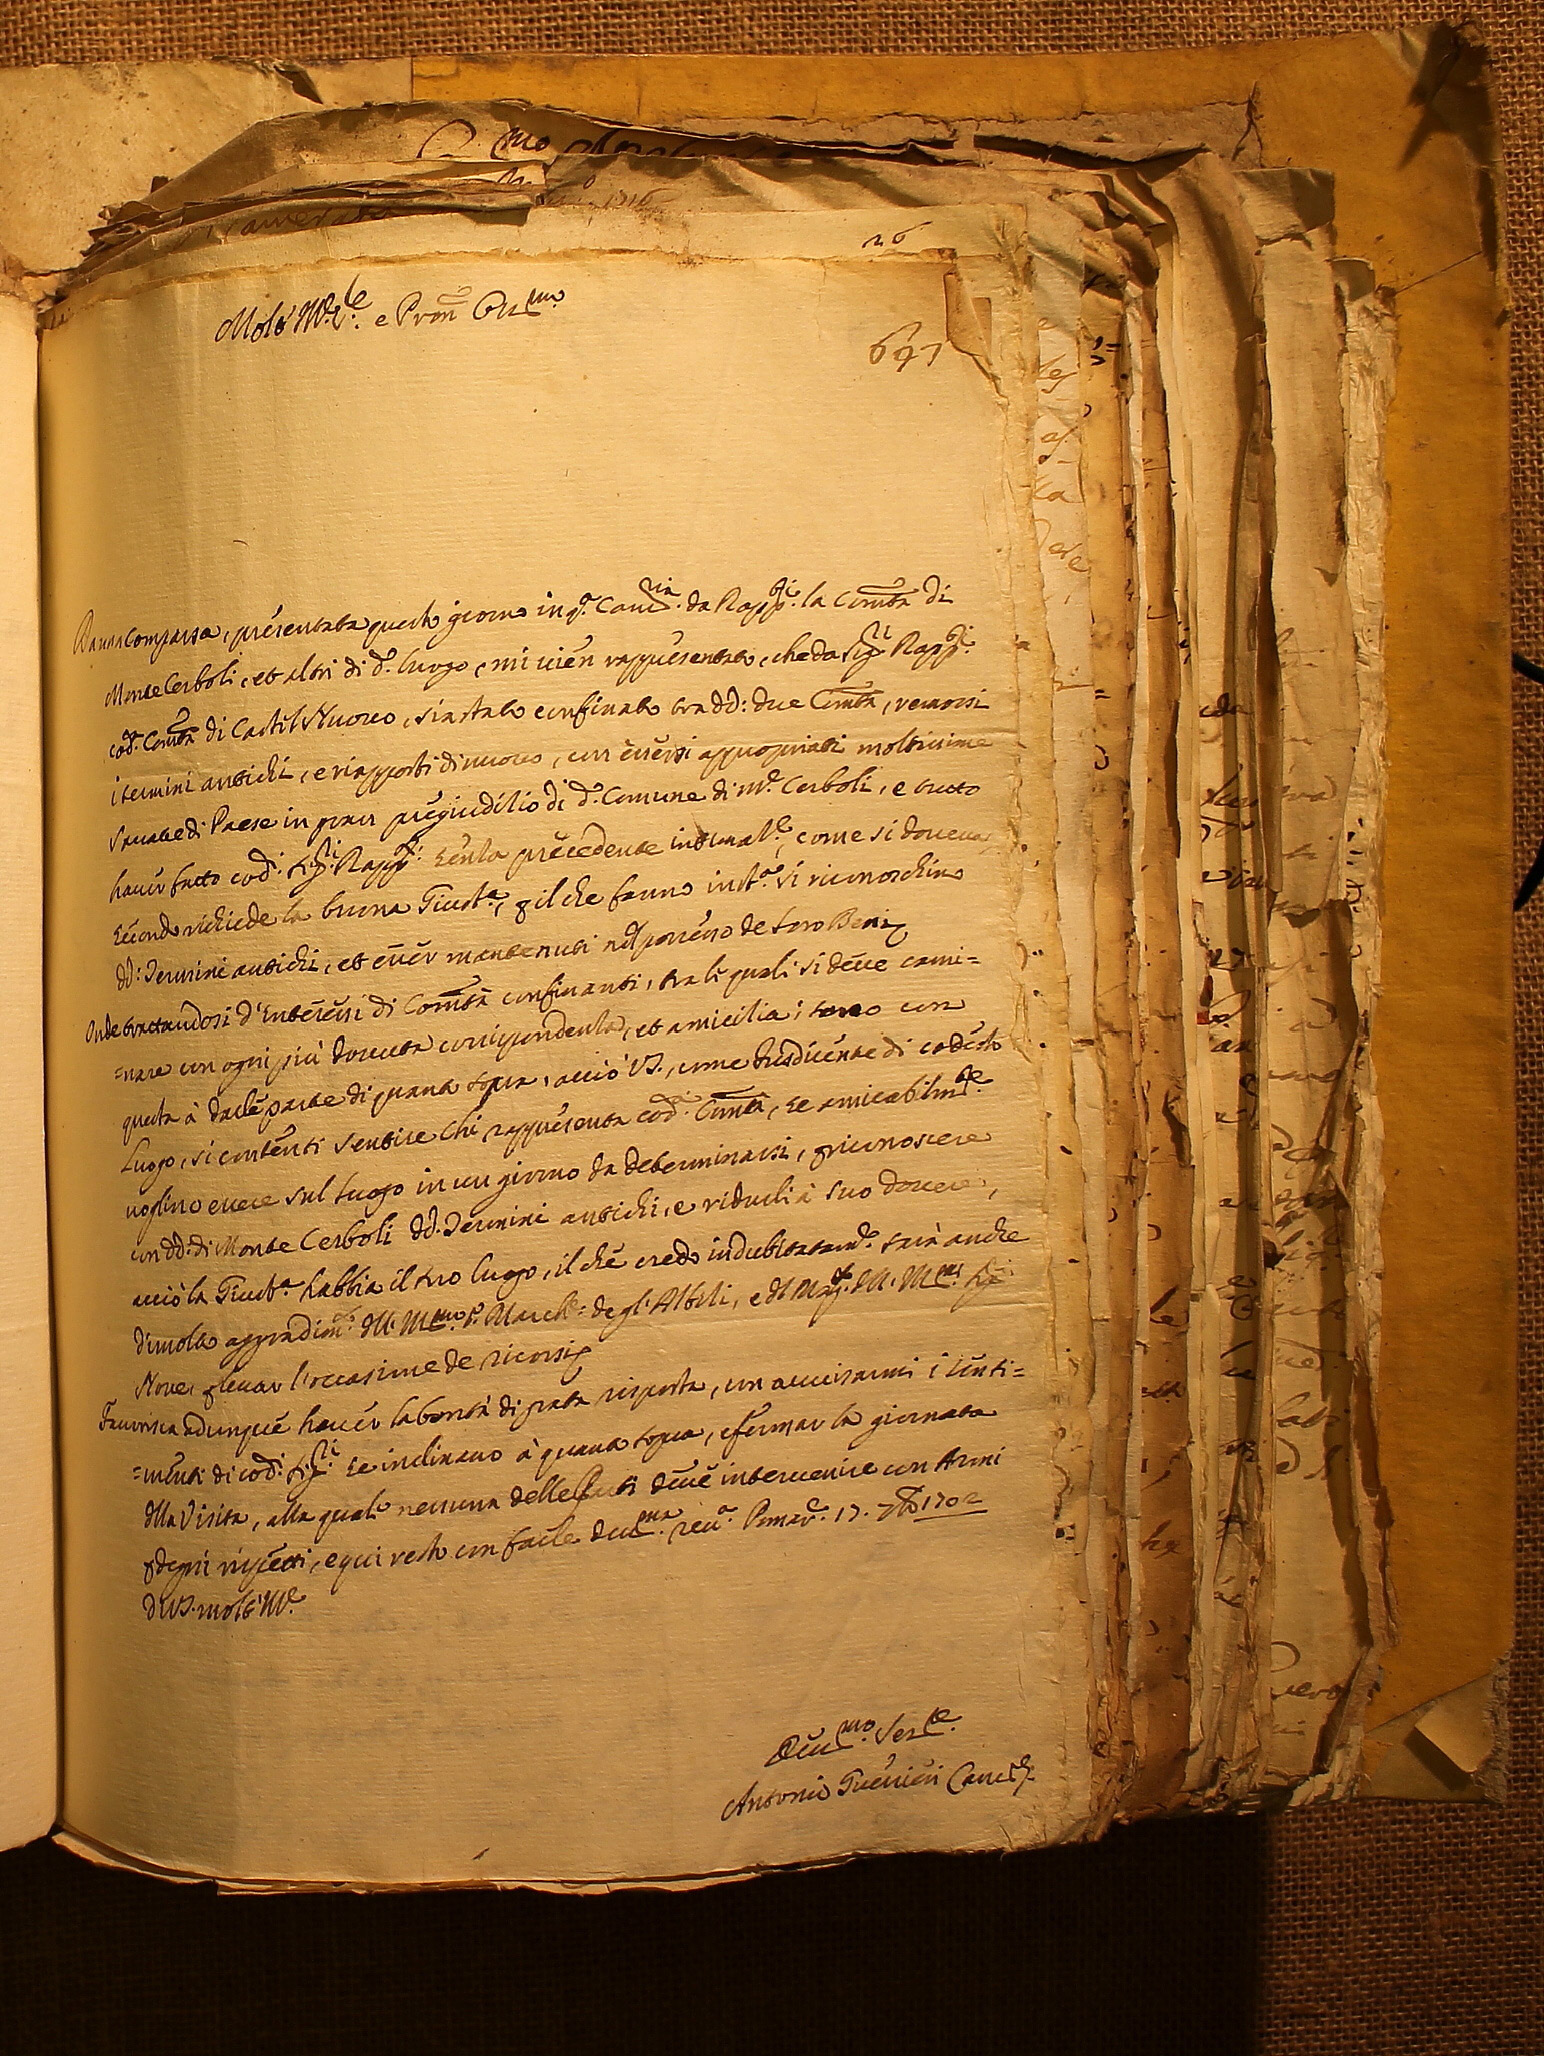 26
Molt' Ill.re e Pron Oss.mo
697
Da una Comparsa, presentata questo giorno in q.a Canc.ria da Rapp.ti la Com.tà di
Monte Cerboli, et altri di d.o luogo, mi vien rappresentato, che da Sig.ri Rapp.ti
cod.a Com.tà di Castel Nuovo, sia stato confinato tra dd: due Com.tà, remossi
i termini antichi, e riapposti di nuovo, con essersi appropriati moltissime
Saccate di Paese in gran pregiuditio di d.o Comune di M.e Cerboli, e tutto
haver fatto cod.i Sig.ri Rapp.ti senza precedente intimat.e, come si doveva
secondo richiede la buona Giust.a, p il che fanno inst.a si riconoschino
dd: Termini antichi, et esser mantenuti nel possesso de loro Beni
Onde trattandosi d'Interessi di Com.tà confinanti, tra li quali si deve cami=
=nare con ogni più dovuta corrispondenza, et amicitia; sono con
questa à darle parte di quanto sopra, acciò VS., come Iusdicente di codesto
Luogo, si contenti sentire chi rappresenta cod.a Com.tà, se amicabilm.te
voglino essere sul luogo in un giorno da determinarsi, p riconoscere
con dd: di Monte Cerboli dd. Termini antichi, e ridurli à suo dovere,
acciò la Giust.a habbia il suo luogo, il che credo indubitatam.e sarà anche
di molto aggradim.o dell' Ill.mo S.r March.e degl'Albizi, e del Mag.to dell' Ill.mi Sig.ri
Nove, p levar l'occasione de ricorsi
Favorisca adunque haver la bontà di grata risposta, con avvisarmi i senti=
=menti di cod.i Sig.ri se inclinano à quanto sopra, e fermar la giornata
della Visita, alla quale nessuna delle Parti deve intervenire con Armi
p degni rispetti, e qui resto con farle dev.ma rev.a Pomar.e 17. 7bre 1702
di VS. molt' Ill.e
Dev.mo Ser.re
Antonio Canc.re